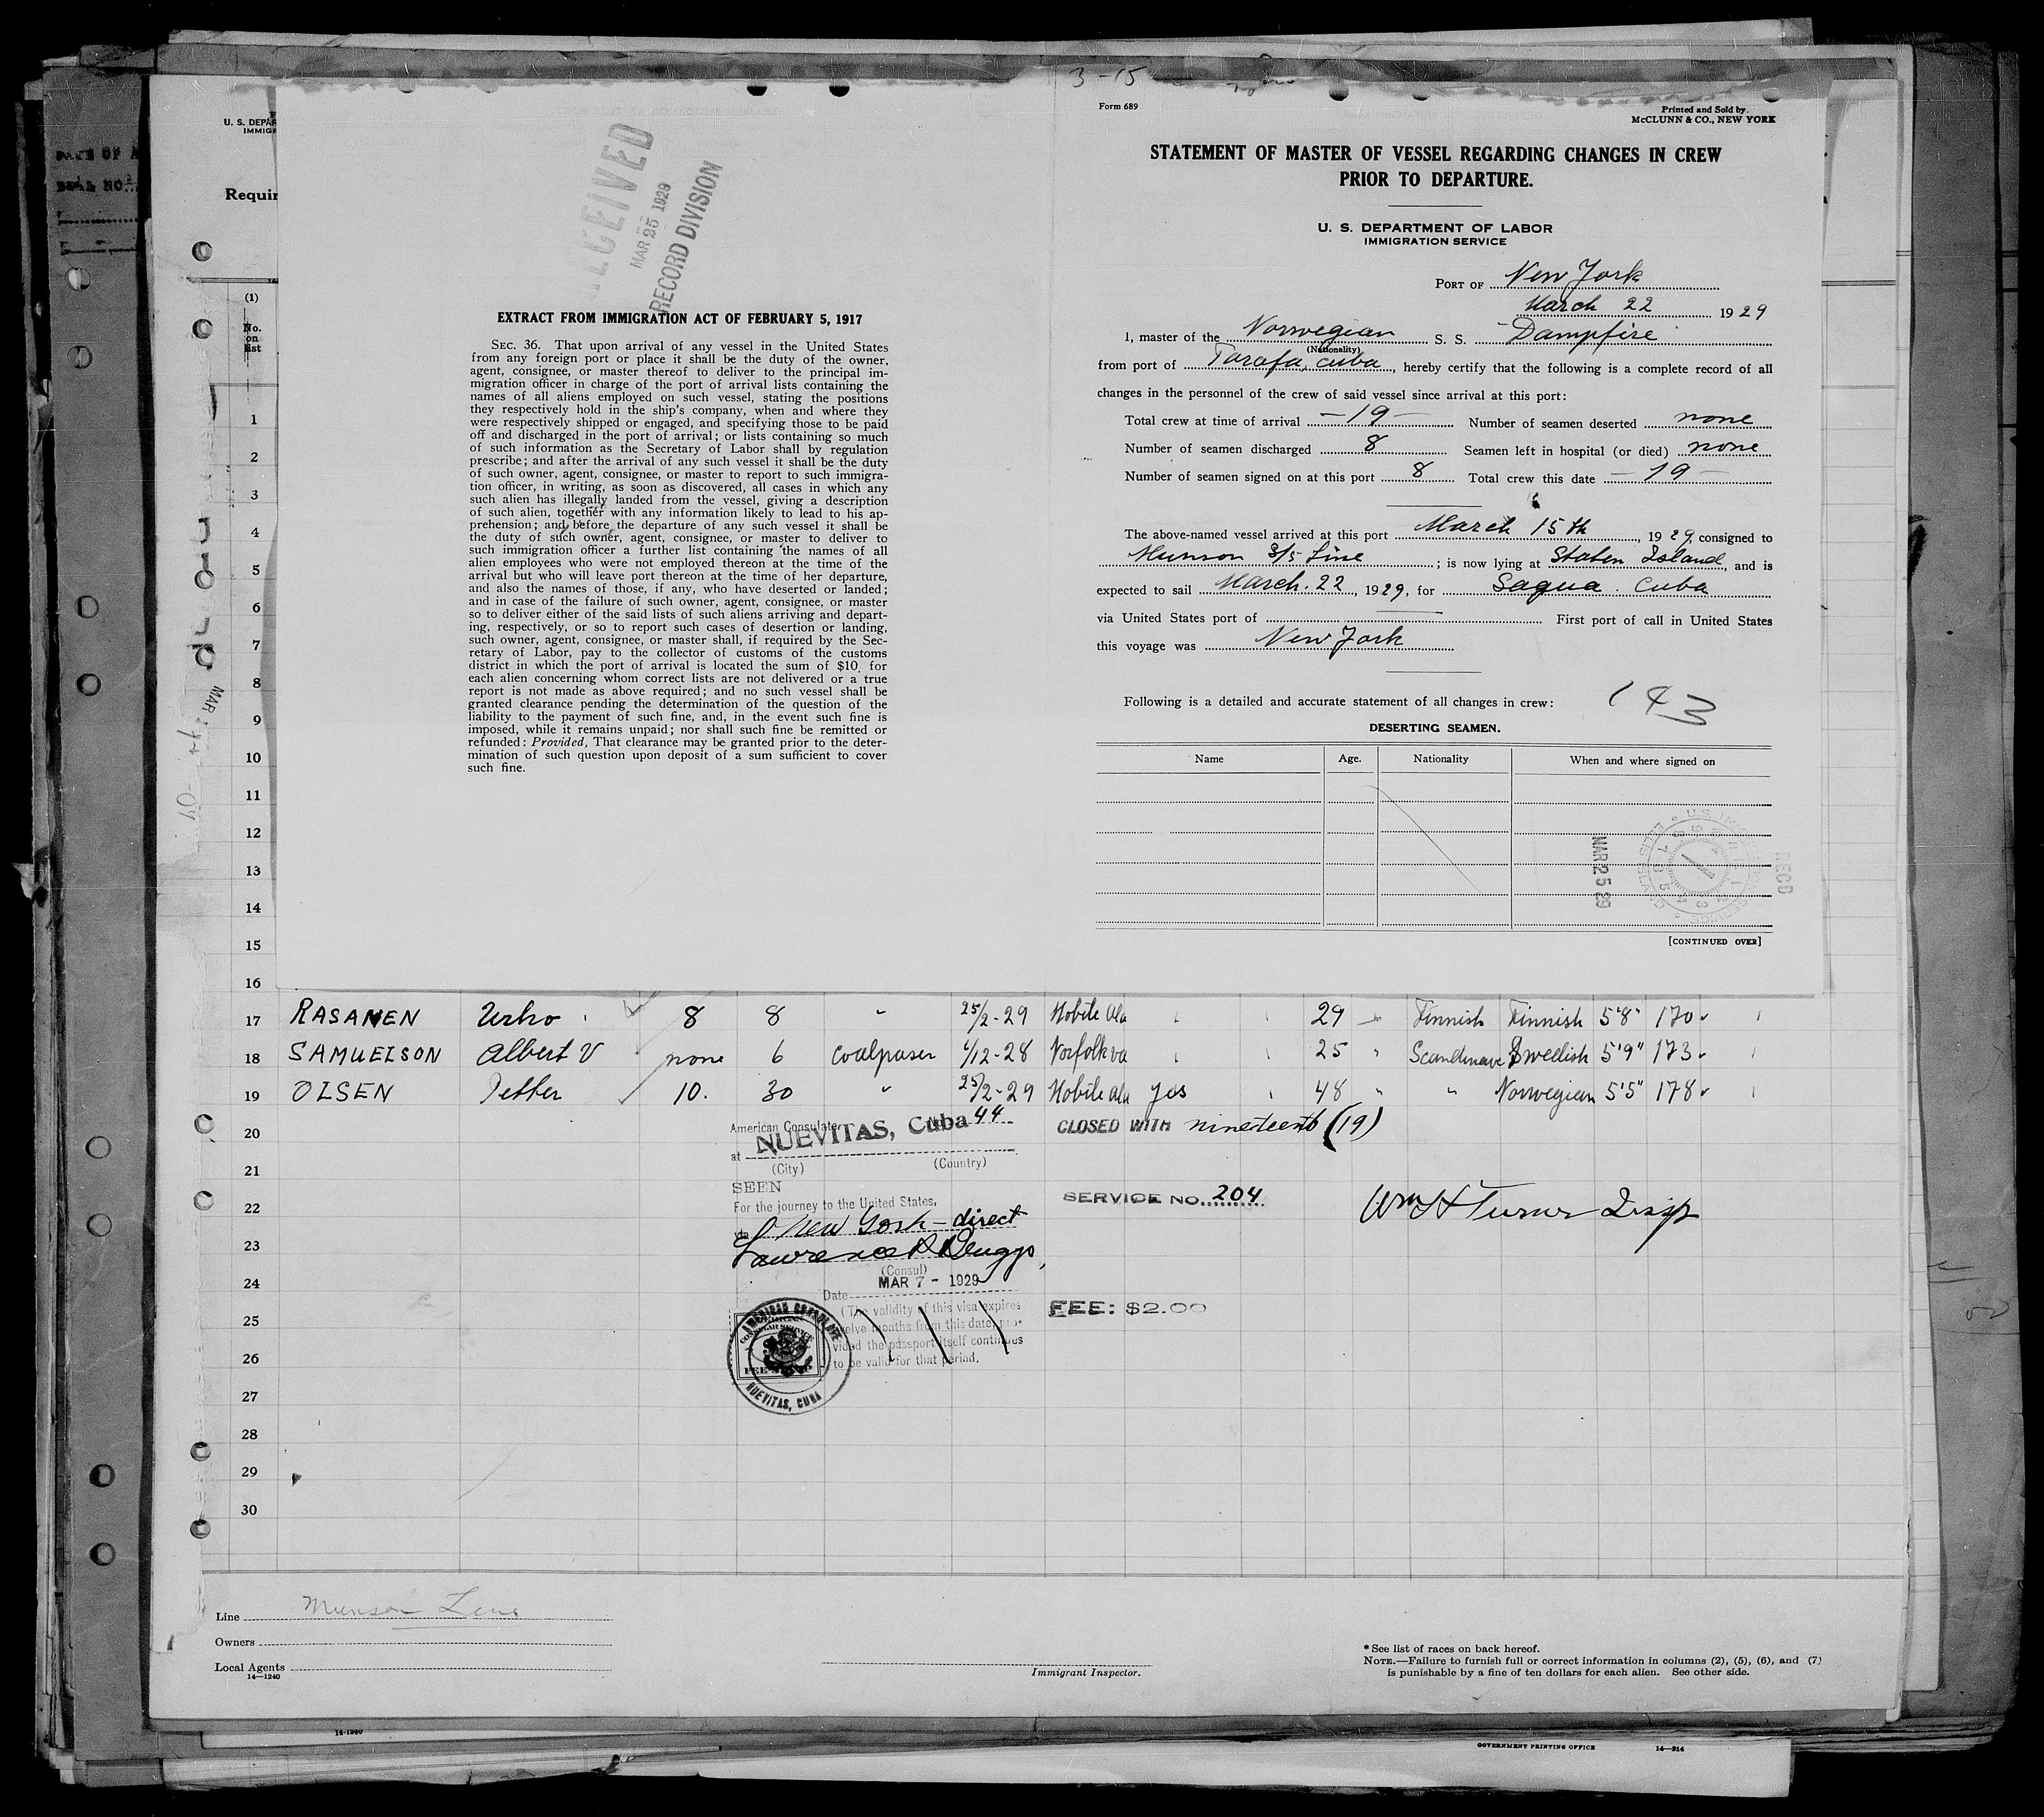 3-15
U. S. DEPAR
IMMIGR
Requir
(1)
No.
on
list
RECEIVED
MAR 25 1929
RECORD DIVISION
EXTRACT FROM IMMIGRATION ACT OF FEBRUARY 5, 1917
SEC. 36. That upon arrival of any vessel in the United States
from any foreign port or place it shall be the duty of the owner,
agent, consignee, or master thereof to deliver to the principal im-
migration officer in charge of the port of arrival lists containing the
names of all aliens employed on such vessel, stating the positions
they respectively hold in the ship's company, when and where they
were respectively shipped or engaged, and specifying those to be paid
off and discharged in the port of arrival; or lists containing so much
of such information as the Secretary of Labor shall by regulation
prescribe; and after the arrival of any such vessel it shall be the duty
of such owner, agent, consignee, or master to report to such immigra-
tion officer, in writing, as soon as discovered, all cases in which any
such alien has illegally landed from the vessel, giving a description
of such alien, together with any information likely to lead to his ap-
prehension; and before the departure of any such vessel it shall be
the duty of such owner, agent, consignee, or master to deliver to
such immigration officer a further list containing the names of all
alien employees who were not employed thereon at the time of the
arrival but who will leave port thereon at the time of her departure,
and also the names of those, if any, who have deserted or landed;
and in case of the failure of such owner, agent, consignee, or master
so to deliver either of the said lists of such aliens arriving and depart-
ing, respectively, or so to report such cases of desertion or landing,
such owner, agent, consignee, or master shall, if required by the Sec-
retary of Labor, pay to the collector of customs of the customs
district in which the port of arrival is located the sum of $10 for
each alien concerning whom correct lists are not delivered or a true
report is not made as above required; and no such vessel shall be
granted clearance pending the determination of the question of the
liability to the payment of such fine, and, in the event such fine is
imposed, while it remains unpaid; nor shall such fine be remitted or
refunded: Provided, That clearance may be granted prior to the deter-
mination of such question upon deposit of a sum sufficient to cover
such fine.
Form 689
Printed and Sold by
McCLUNN & CO., NEW YORK
STATEMENT OF MASTER OF VESSEL REGARDING CHANGES IN CREW
PRIOR TO DEPARTURE.
U. S. DEPARTMENT OF LABOR
IMMIGRATION SERVICE
PORT OF New York
March 22 1929
I, master of the Norwegian S. S. Dampfire
(Nationality)
from port of Tarafa, Cuba, hereby certify that the following is a complete record of all
changes in the personnel of the crew of said vessel since arrival at this port:
Total crew at time of arrival —19— Number of seamen deserted none
Number of seamen discharged 8 Seamen left in hospital (or died) none
Number of seamen signed on at this port 8 Total crew this date —19—
The above-named vessel arrived at this port March 15th, 1929, consigned to
Munson S/S Line; is now lying at Staten Island, and is
expected to sail March. 22, 1929, for Sagua. Cuba
via United States port of First port of call in United States
this voyage was New York
Following is a detailed and accurate statement of all changes in crew: 143
DESERTING SEAMEN.
Name Age. Nationality When and where signed on
MAR 25 29
RECD
[CONTINUED OVER]
1
2
3
4
5
6
7
8
9
10
11
12
13
14
15
16
17 RASANEN Urho 8 8 " 25/2-29 Mobile Ala " " 29 " Finnish Finnish 5'8" 170
18 SAMUELSON Albert V none 6 coalpaser 6/12-28 Norfolk va " " 25 " Scandinave Swedish 5'9" 173
19 OLSEN Petter 10. 30 " 25/2-29 Mobile Ala yes " 48 " " Norwegian 5'5" 178
20
21
22
23
24
25
26
27
28
29
30
American Consulate 44
at NUEVITAS, Cuba
(City) (Country)
SEEN
For the journey to the United States,
via New York – direct
(Consul)
Date MAR 7 - 1929
(The validity of this visa expires
twelve months from this date, pro-
vided the passport itself continues
to be valid for that period.
AMERICAN CONSULATE
NUEVITAS, CUBA
CLOSED WITH nineteenth (19)
SERVICE NO. 204
Wm H Turner Insp
FEE: $2.00
Line Munson Line
Owners
Local Agents
14—1240
Immigrant Inspector.
* See list of races on back hereof.
NOTE.—Failure to furnish full or correct information in columns (2), (5), (6), and (7)
is punishable by a fine of ten dollars for each alien. See other side.
14-1240
GOVERNMENT PRINTING OFFICE 14—214